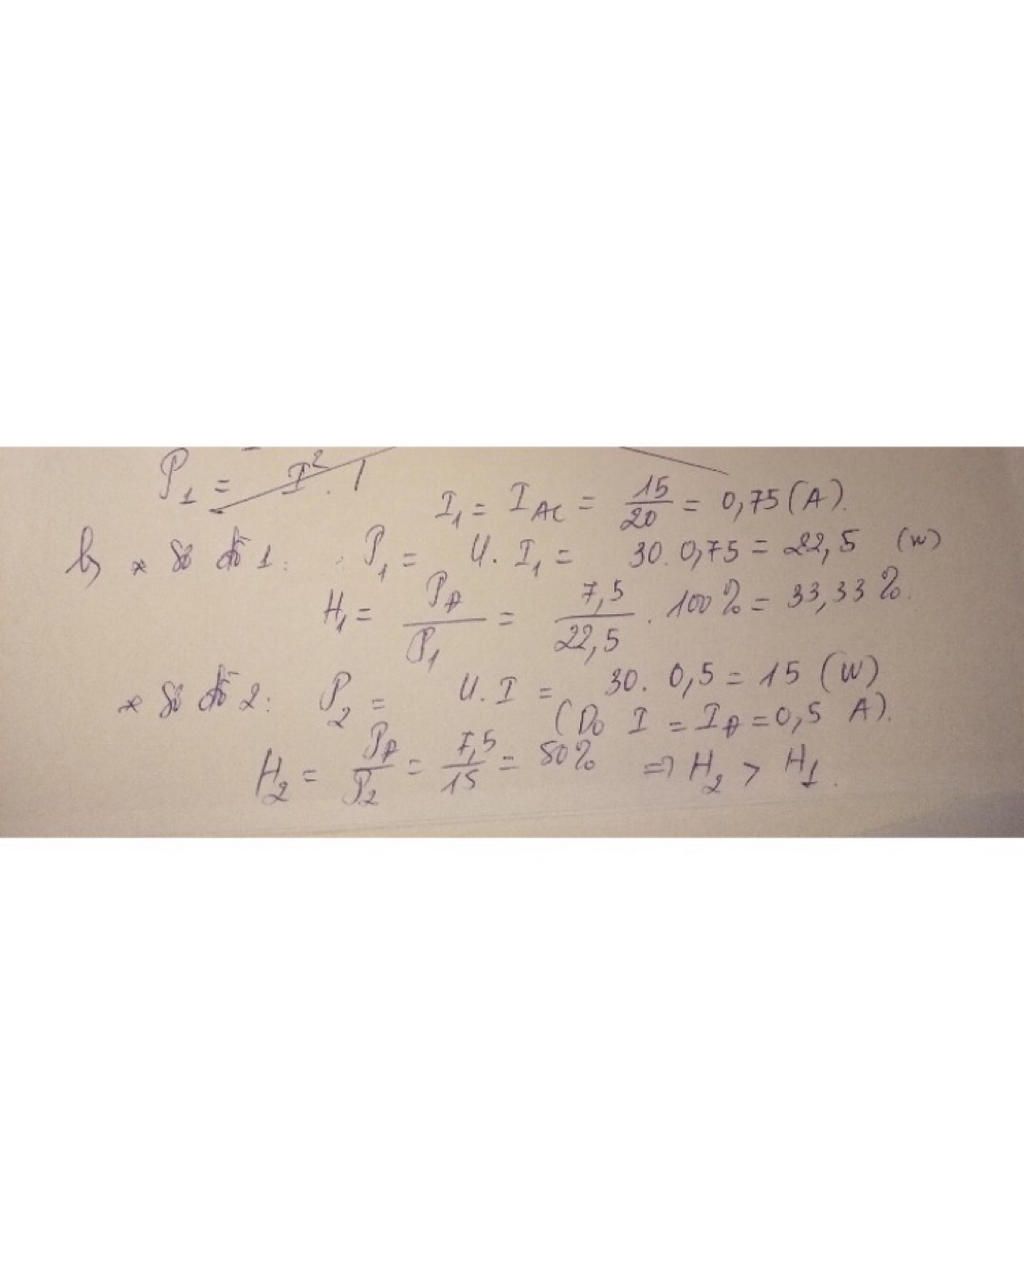 P₁ = I².
I₁ = I_AC = 15/20 = 0,75 (A).
b, * Sơ đồ 1: P₁ = U.I₁ = 30.0,75 = 22,5 (W)
H₁ = P_Đ/P₁ = 7,5/22,5 . 100% = 33,33%.
* Sơ đồ 2: P₂ = U.I = 30. 0,5 = 15 (W)
(Do I = I_Đ = 0,5 A).
H₂ = P_Đ/P₂ = 7,5/15 = 50% => H₂ > H₁.